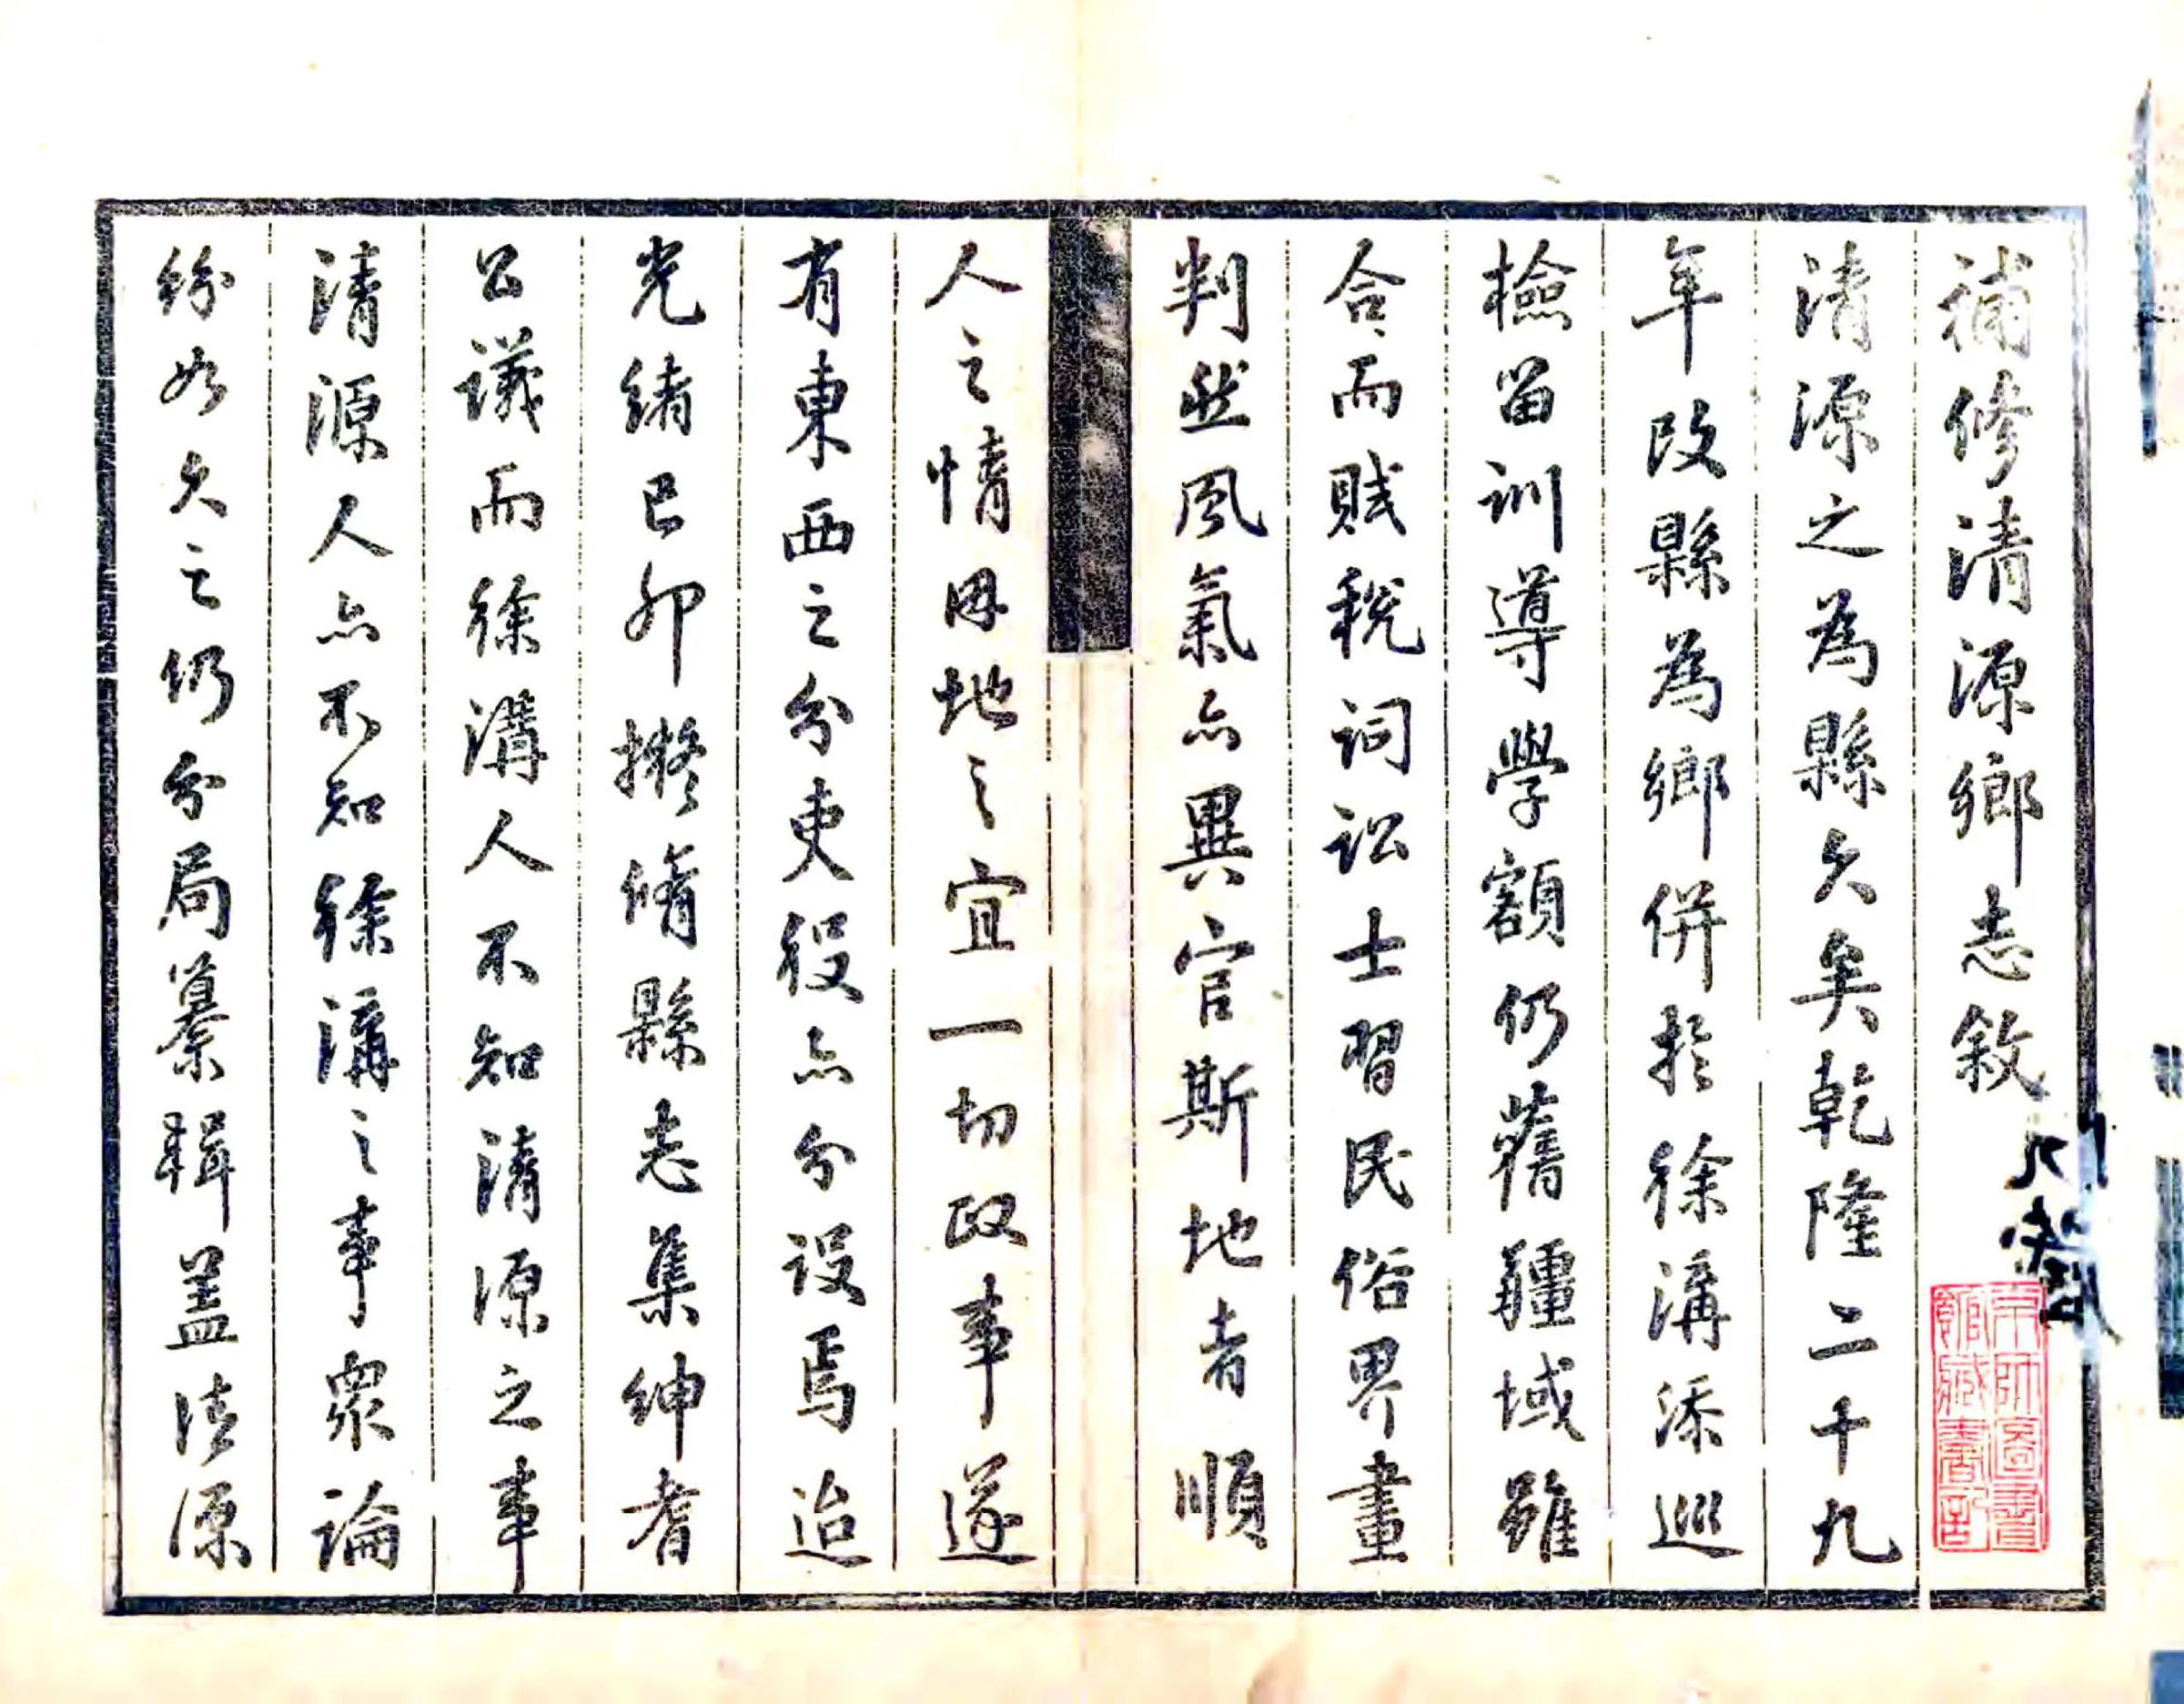 補修清源鄉志敘
清源之為縣久矣乾隆二十九
年改縣為鄉併於徐溝添巡
檢留訓導學額仍舊疆域雖
合而賦稅詞訟士習民俗界畫
判然風氣亦異官斯地者順
人之情因地之宜一切政事遂
有東西之分吏役亦分設焉迨
光緒己卯擬脩縣志集紳耆
公議而徐溝人不知清源之事
清源人亦不知徐溝之事眾論
紛如久之仍分局纂輯蓋清源
京師圖書
館藏書記